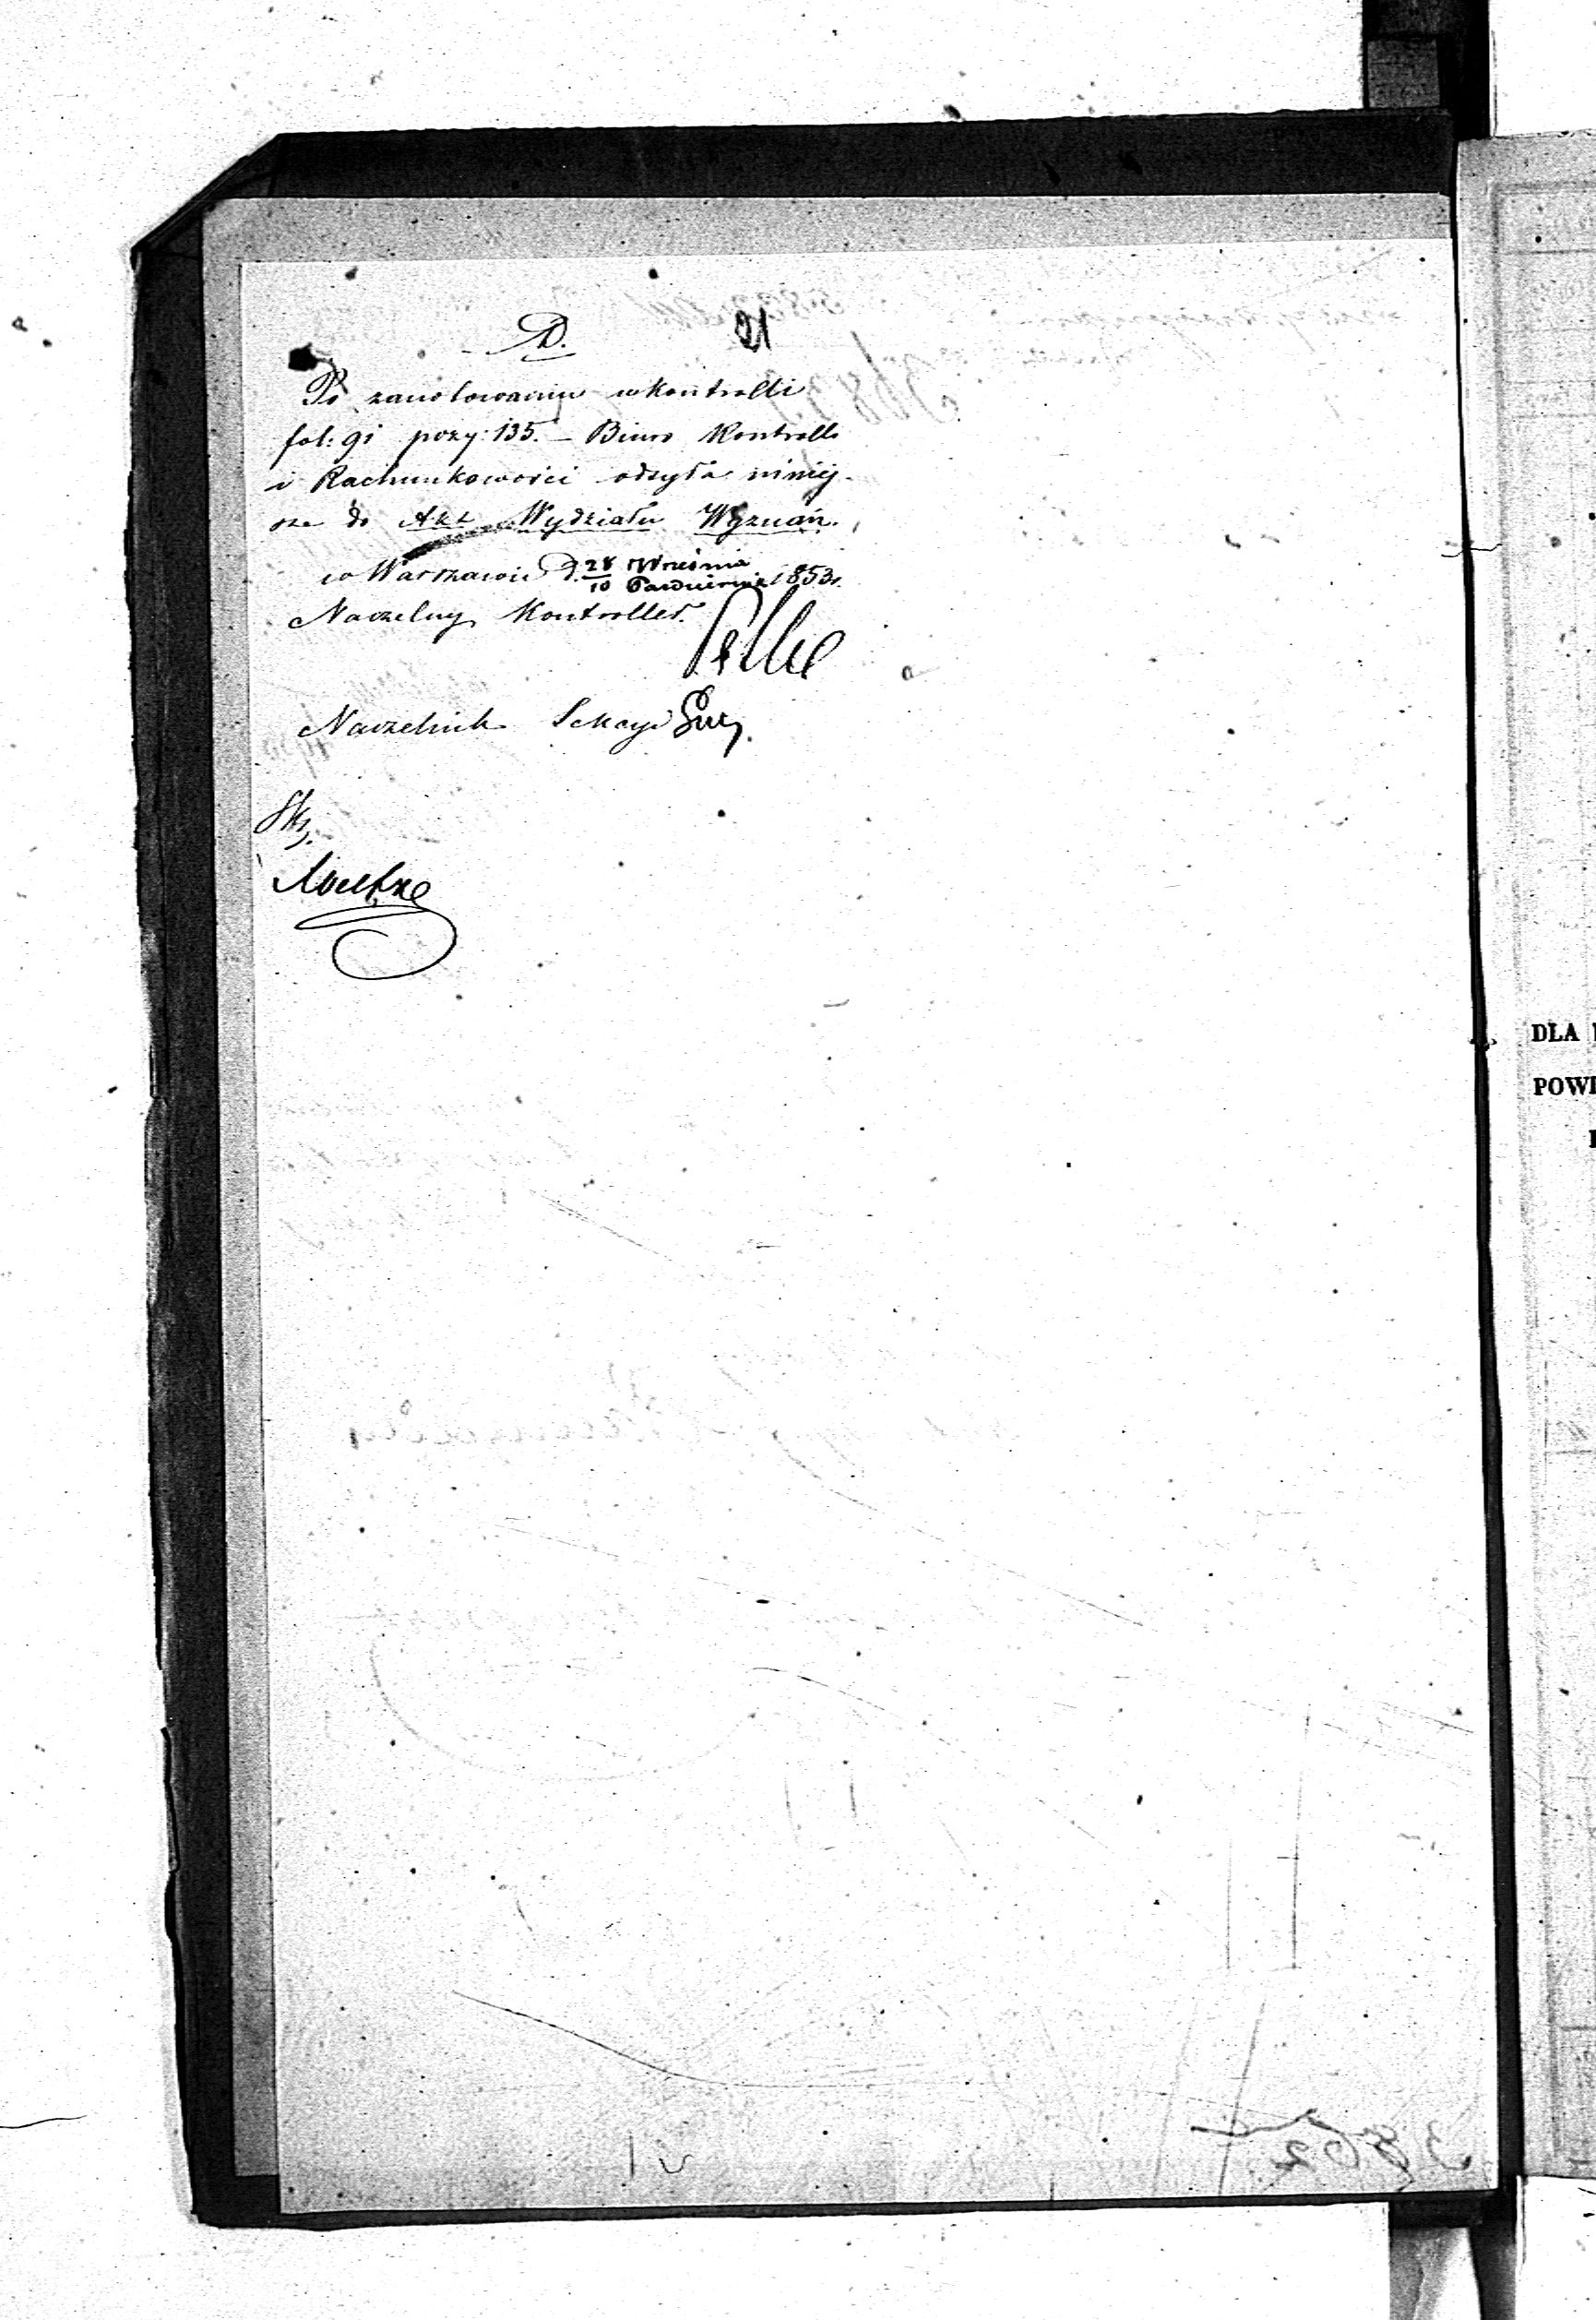 D. 21
Po zanotowaniu w kontrolli
fol: 91 pozy: 135. – Biuro Kontrolli
i Rachunkowości odsyła niniej-
sze do Akt Wydziału Wyznań.
w Warszawie d. 28 Września / 10 Październik 1853 r.
Naczelny Kontroller.
Naczelnik Sekcyi
DLA
POWI